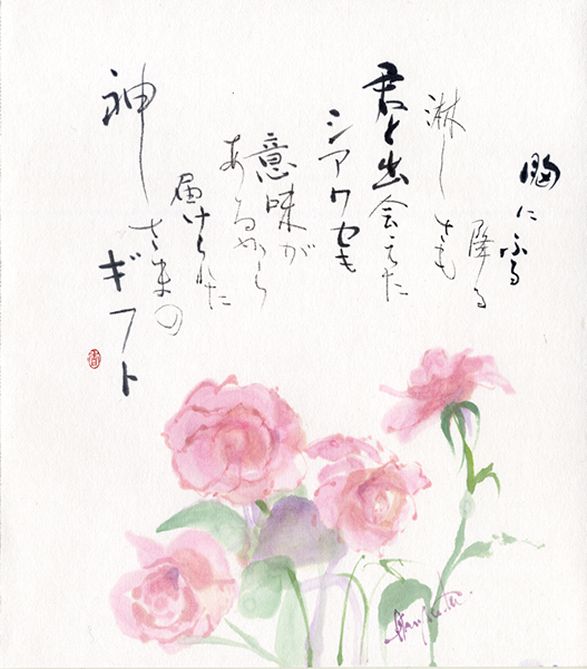 胸にふる
降る
淋しさも
君と出会えた
シアワセも
意味が
あるから
届けられた
神さまの
ギフト